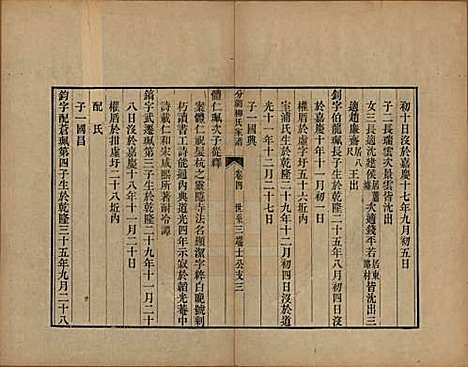 初十日沒於嘉慶十七年九月初五日
子二長瑞雲次雲皆沈出
女三長適沈建侯居北舍次適錢平若居東路村
適趙廉齋居八王出
釗字伯龍珮長子生於乾隆二十五年八月初四日沒
於嘉慶十年十一月初一日
權厝於扇虛字圩五十六坵內
室浦氏生於乾隆二十九年十二月初四日沒於道
光十一年十二月二十七日
子一國興
分湖柳氏家譜 卷四 世系三瑞士公支三
體仁珮次子從釋
案體仁祝髮杭之靈隱寺法名顯潔字粹白晚號剩
朽讀書工詩能通內典道光四年示寂於給光菴中
詩載仁和宋咸熙所著耐冷譚
鎬字武遷珮第三子生於乾隆二十九年十一月二十
八日沒於嘉慶十八年十一月二十日
權厝於扣虛圩二十八坵內
配 氏
子一國昌
鈞字配蒼珮第四子生於乾隆三十五年九月二十八